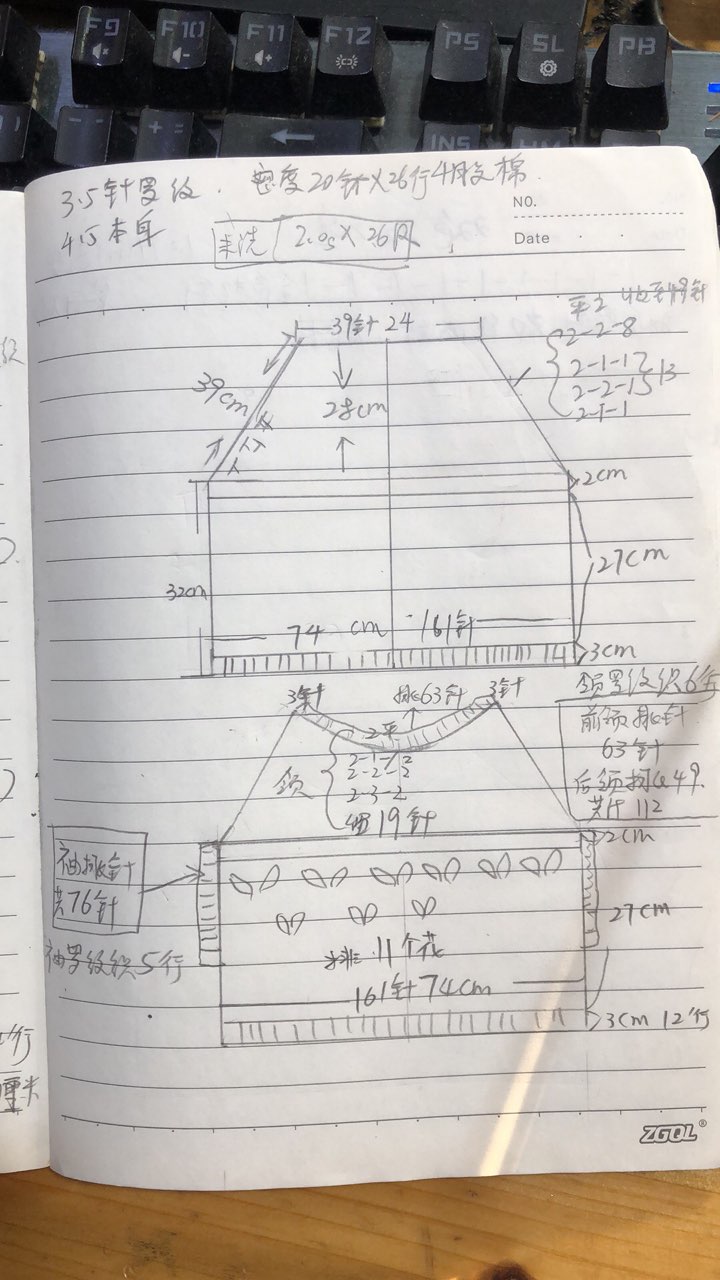 F9
F10
F11
F12
PS
SL
PB
INS
3.5针罗纹. 密度20针×26行4股棉.
4.5本身
未洗
NO.
Date
39针 24
平2
2-2-8
2-1-17
2-2-15 13
2-1-1
39cm
28cm
2cm
27cm
32cm
74 cm 161针
3cm
领罗纹织6行
3针
挑63针
3针
2平
2-2-2
2-3-2
留19针
领
前领挑针
63针
后领挑49.
共 112
2cm
袖挑针
共76针
27cm
袖罗纹织5行
排 11个花
161针 74cm
3cm 12行
行
厘米
ZGOL®